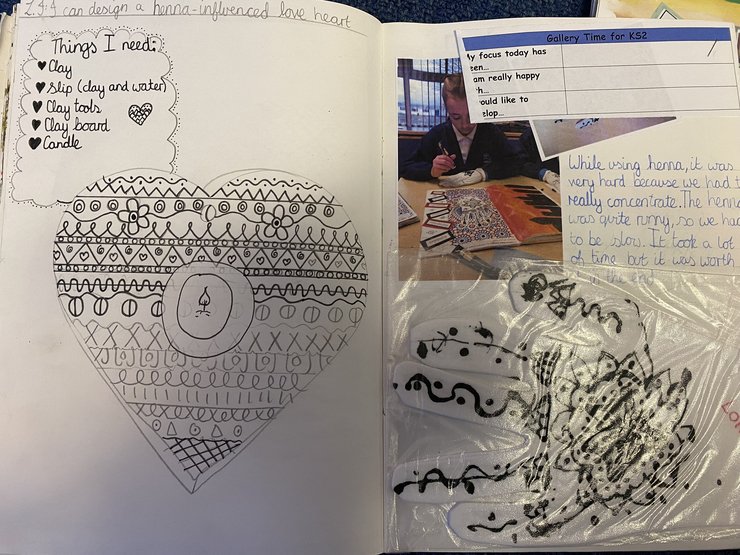 I can design a henna-influenced love heart
Things I need:
Clay
Slip (clay and water)
Clay tools
Clay board
Candle
Gallery Time for KS2
y focus today has
een...
am really happy
h...
ould like to
elop...
While using henna, it was
very hard because we had t
really concentrate. The henna
was quite runny, so we had
to be slow. It took a lot
of time but it was worth
in the end